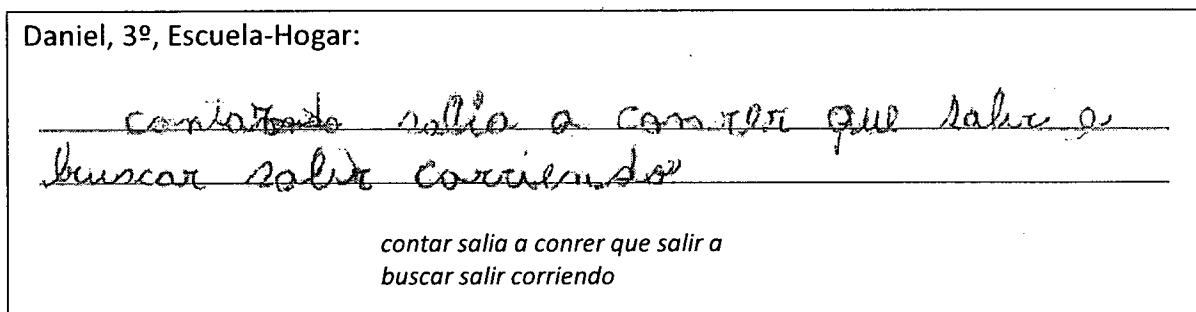 Daniel, 3º, Escuela-Hogar:
contar salia a conrrer que salir a
buscar salir corriendo
contar salia a conrer que salir a
buscar salir corriendo